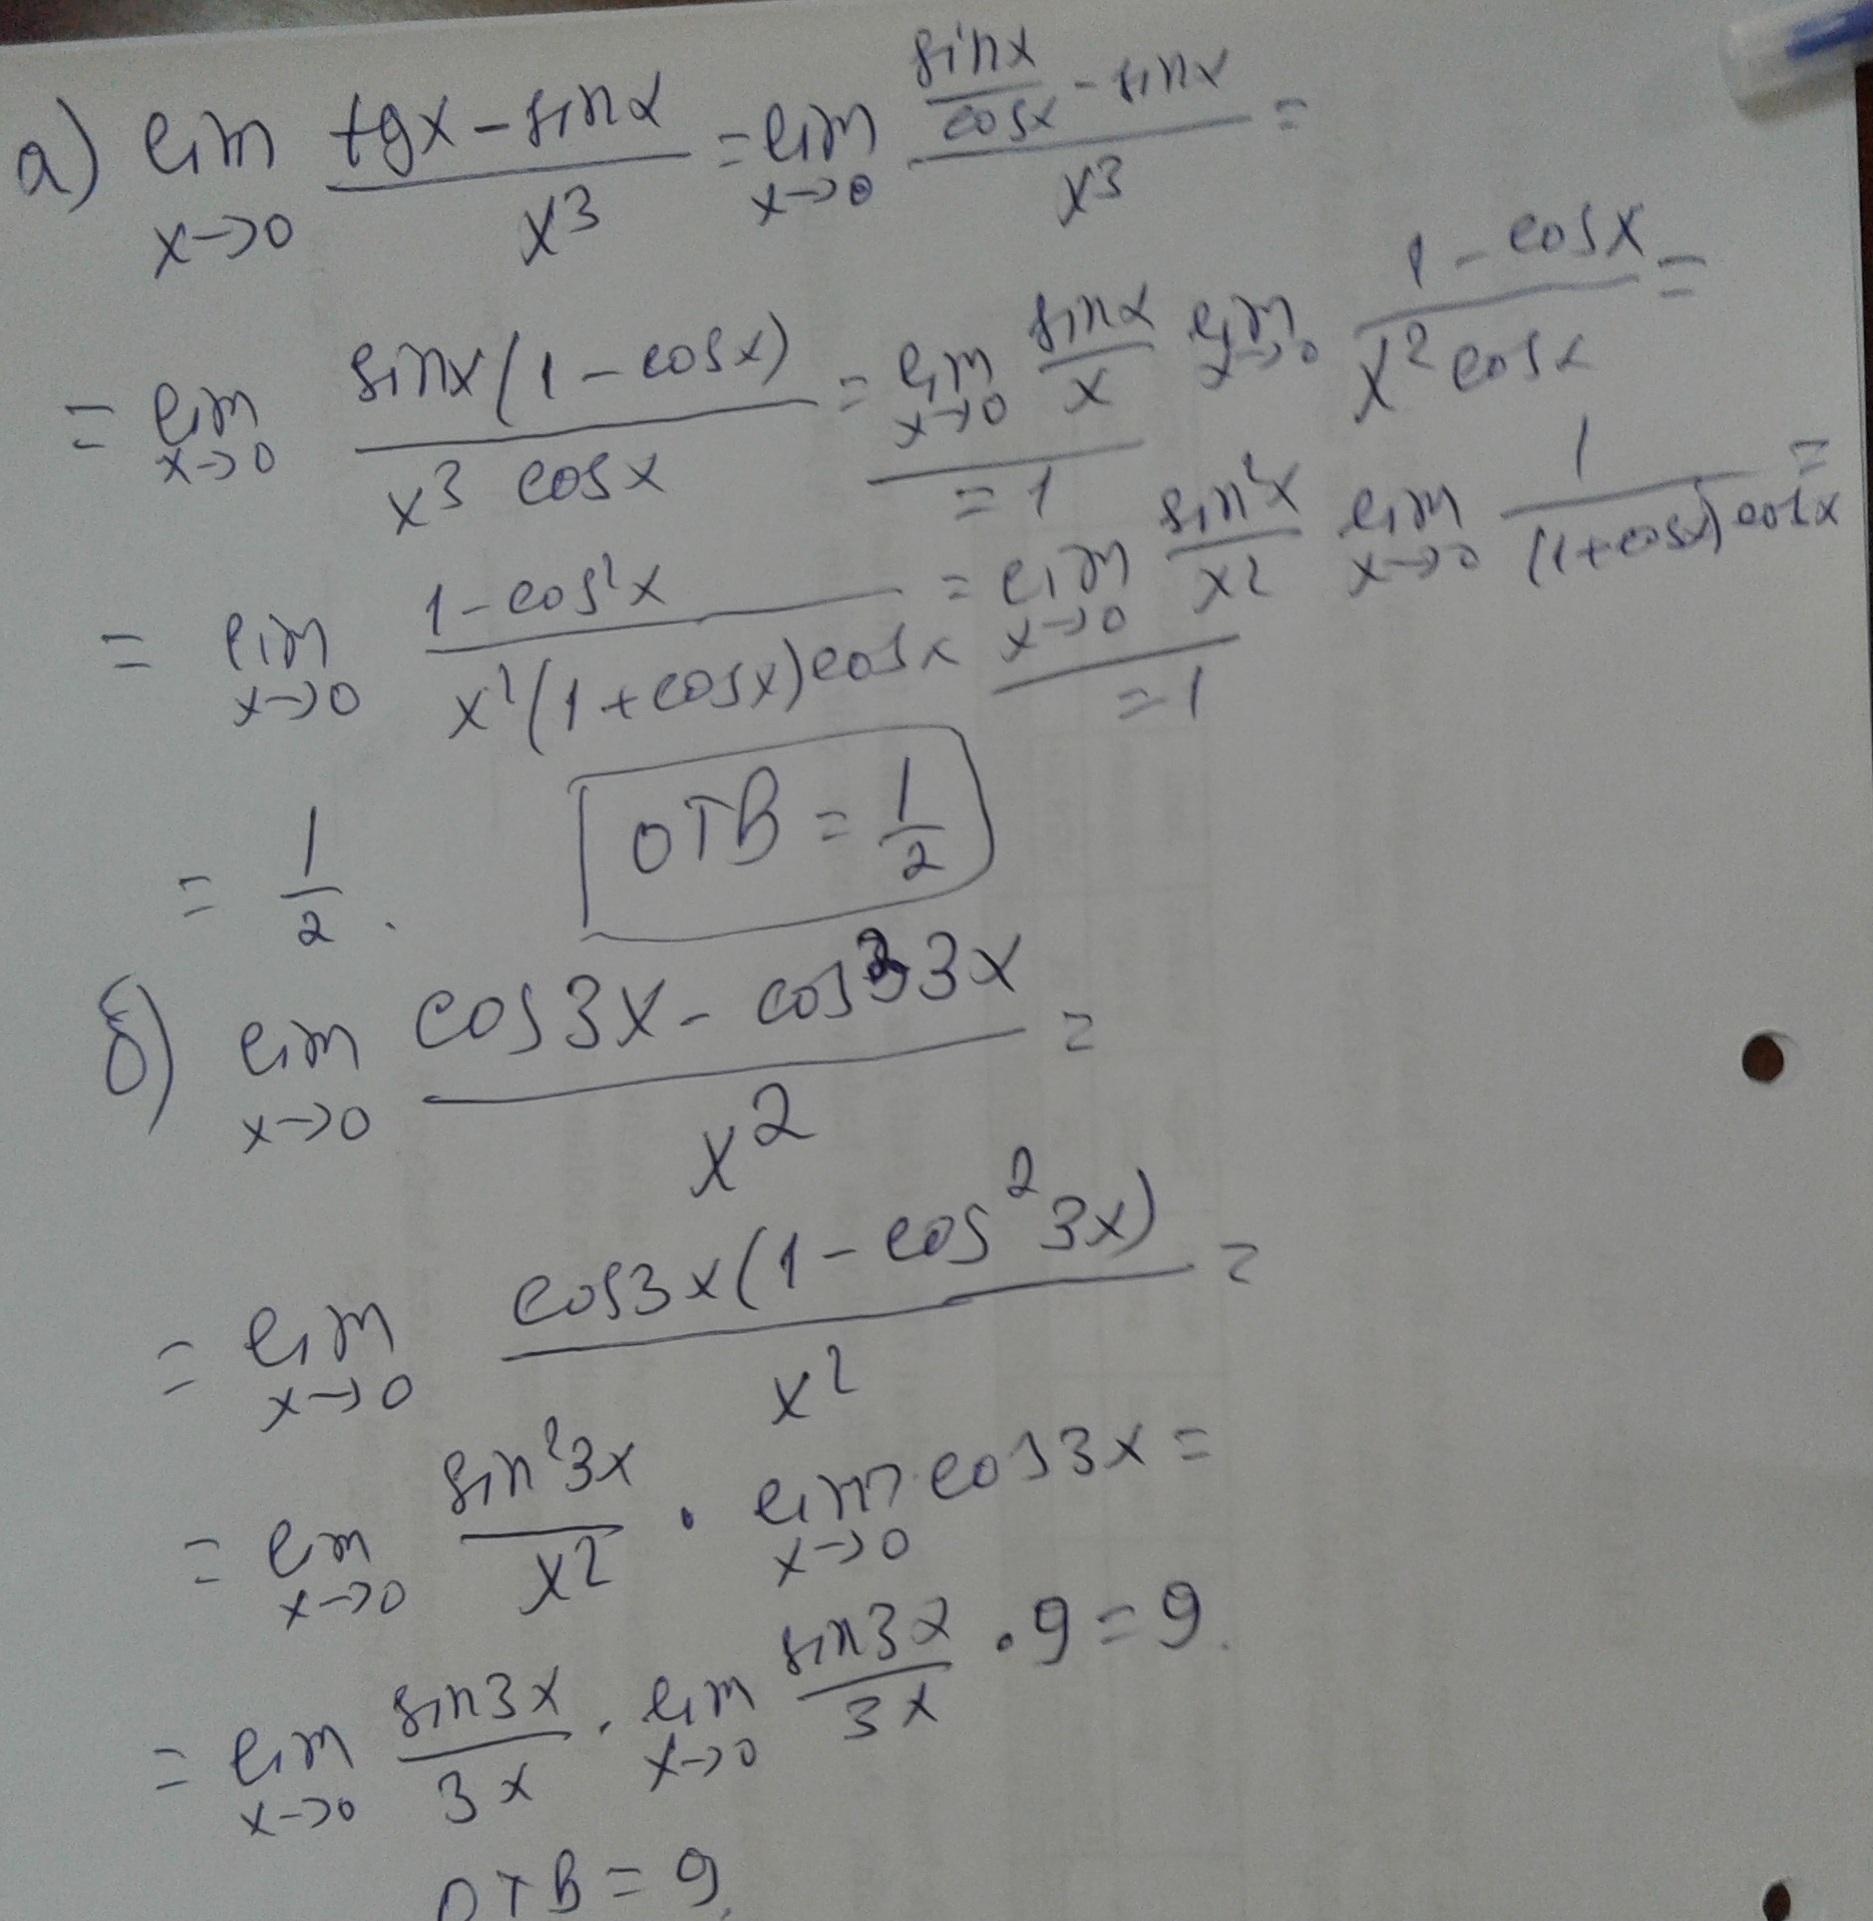 а) lim x→0 (tgx - sinx)/x³ = lim x→0 (sinx/cosx - sinx)/x³ =
= lim x→0 sinx(1 - cosx)/(x³ cosx) = lim x→0 sinx/x lim x→0 (1 - cosx)/(x² cosx) =
= 1
= lim x→0 (1 - cos²x)/(x²(1 + cosx)cosx) = lim x→0 sin²x/x² lim x→0 1/((1+cosx)cosx) =
= 1
= 1/2. ОТВ = 1/2
б) lim x→0 (cos3x - cos³3x)/x² =
= lim x→0 cos3x(1 - cos²3x)/x² =
= lim x→0 sin²3x/x² · lim x→0 cos3x =
= lim x→0 sin3x/3x · lim x→0 sin3x/3x · 9 = 9.
ОТВ = 9.